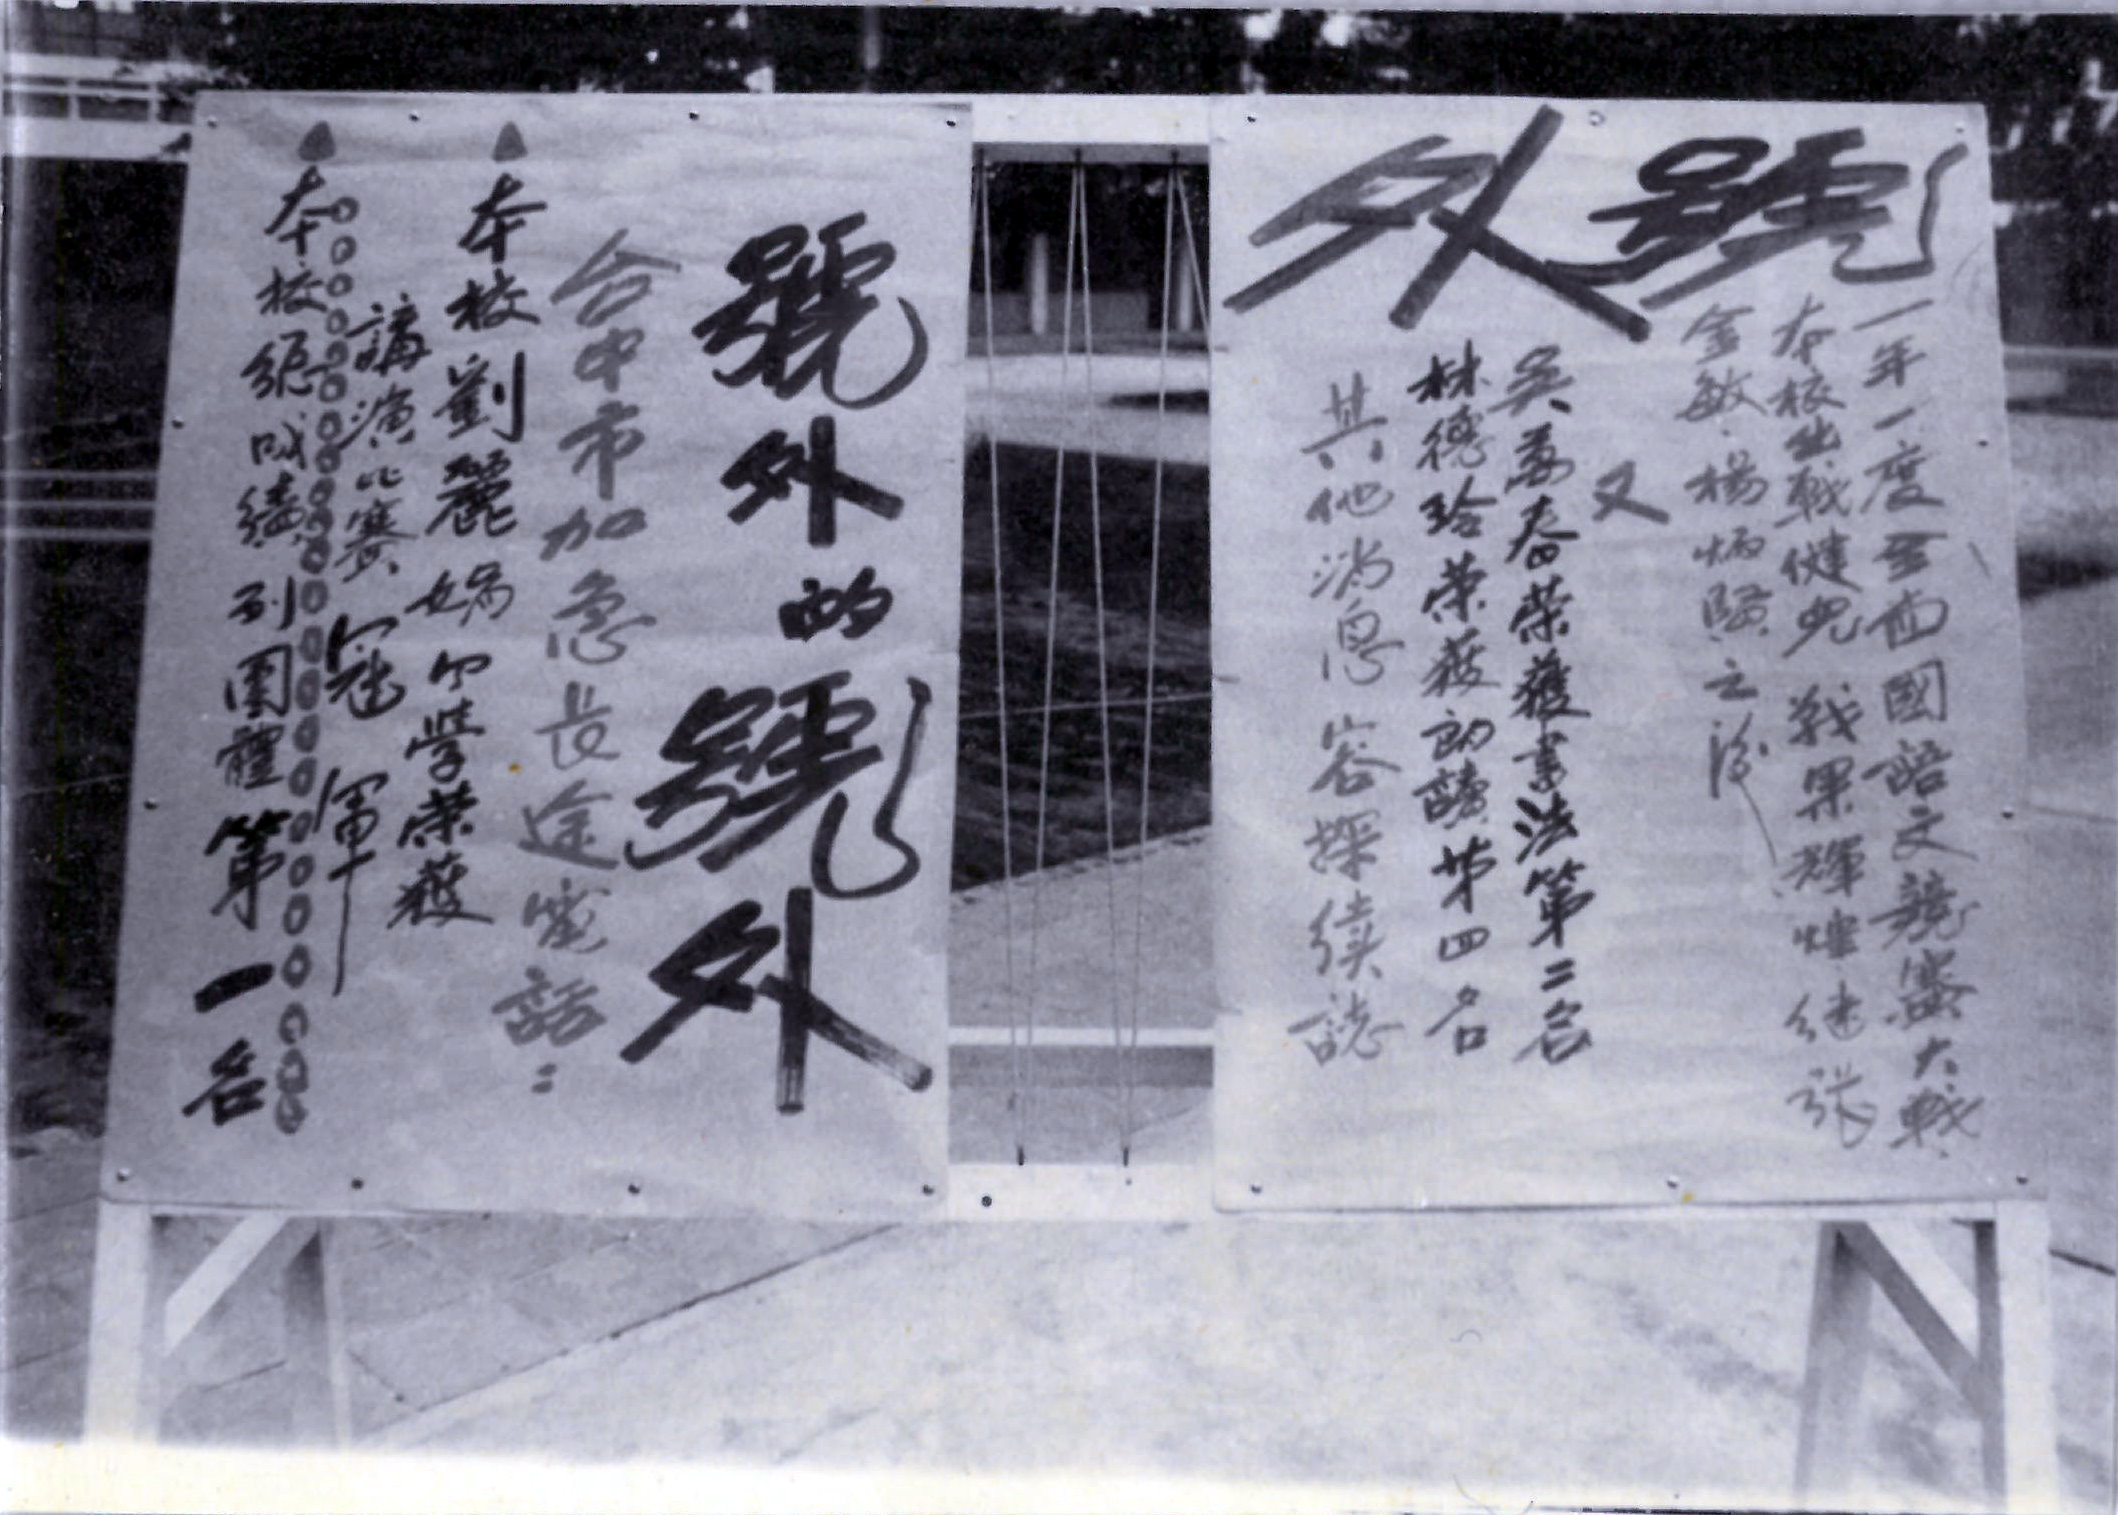 號外
一年一度全省國語文競賽大戰
本校出戰健兒 戰果輝煌 继張
金敏.楊炳賢之後
又
吳萬春榮獲書法第二名
林德玲榮獲朗讀第四名
其他消息容探續誌
號外的號外
台中市加急長途電話：
本校劉麗娟同學榮獲
講演比賽冠軍
本校總成績列團體第一名